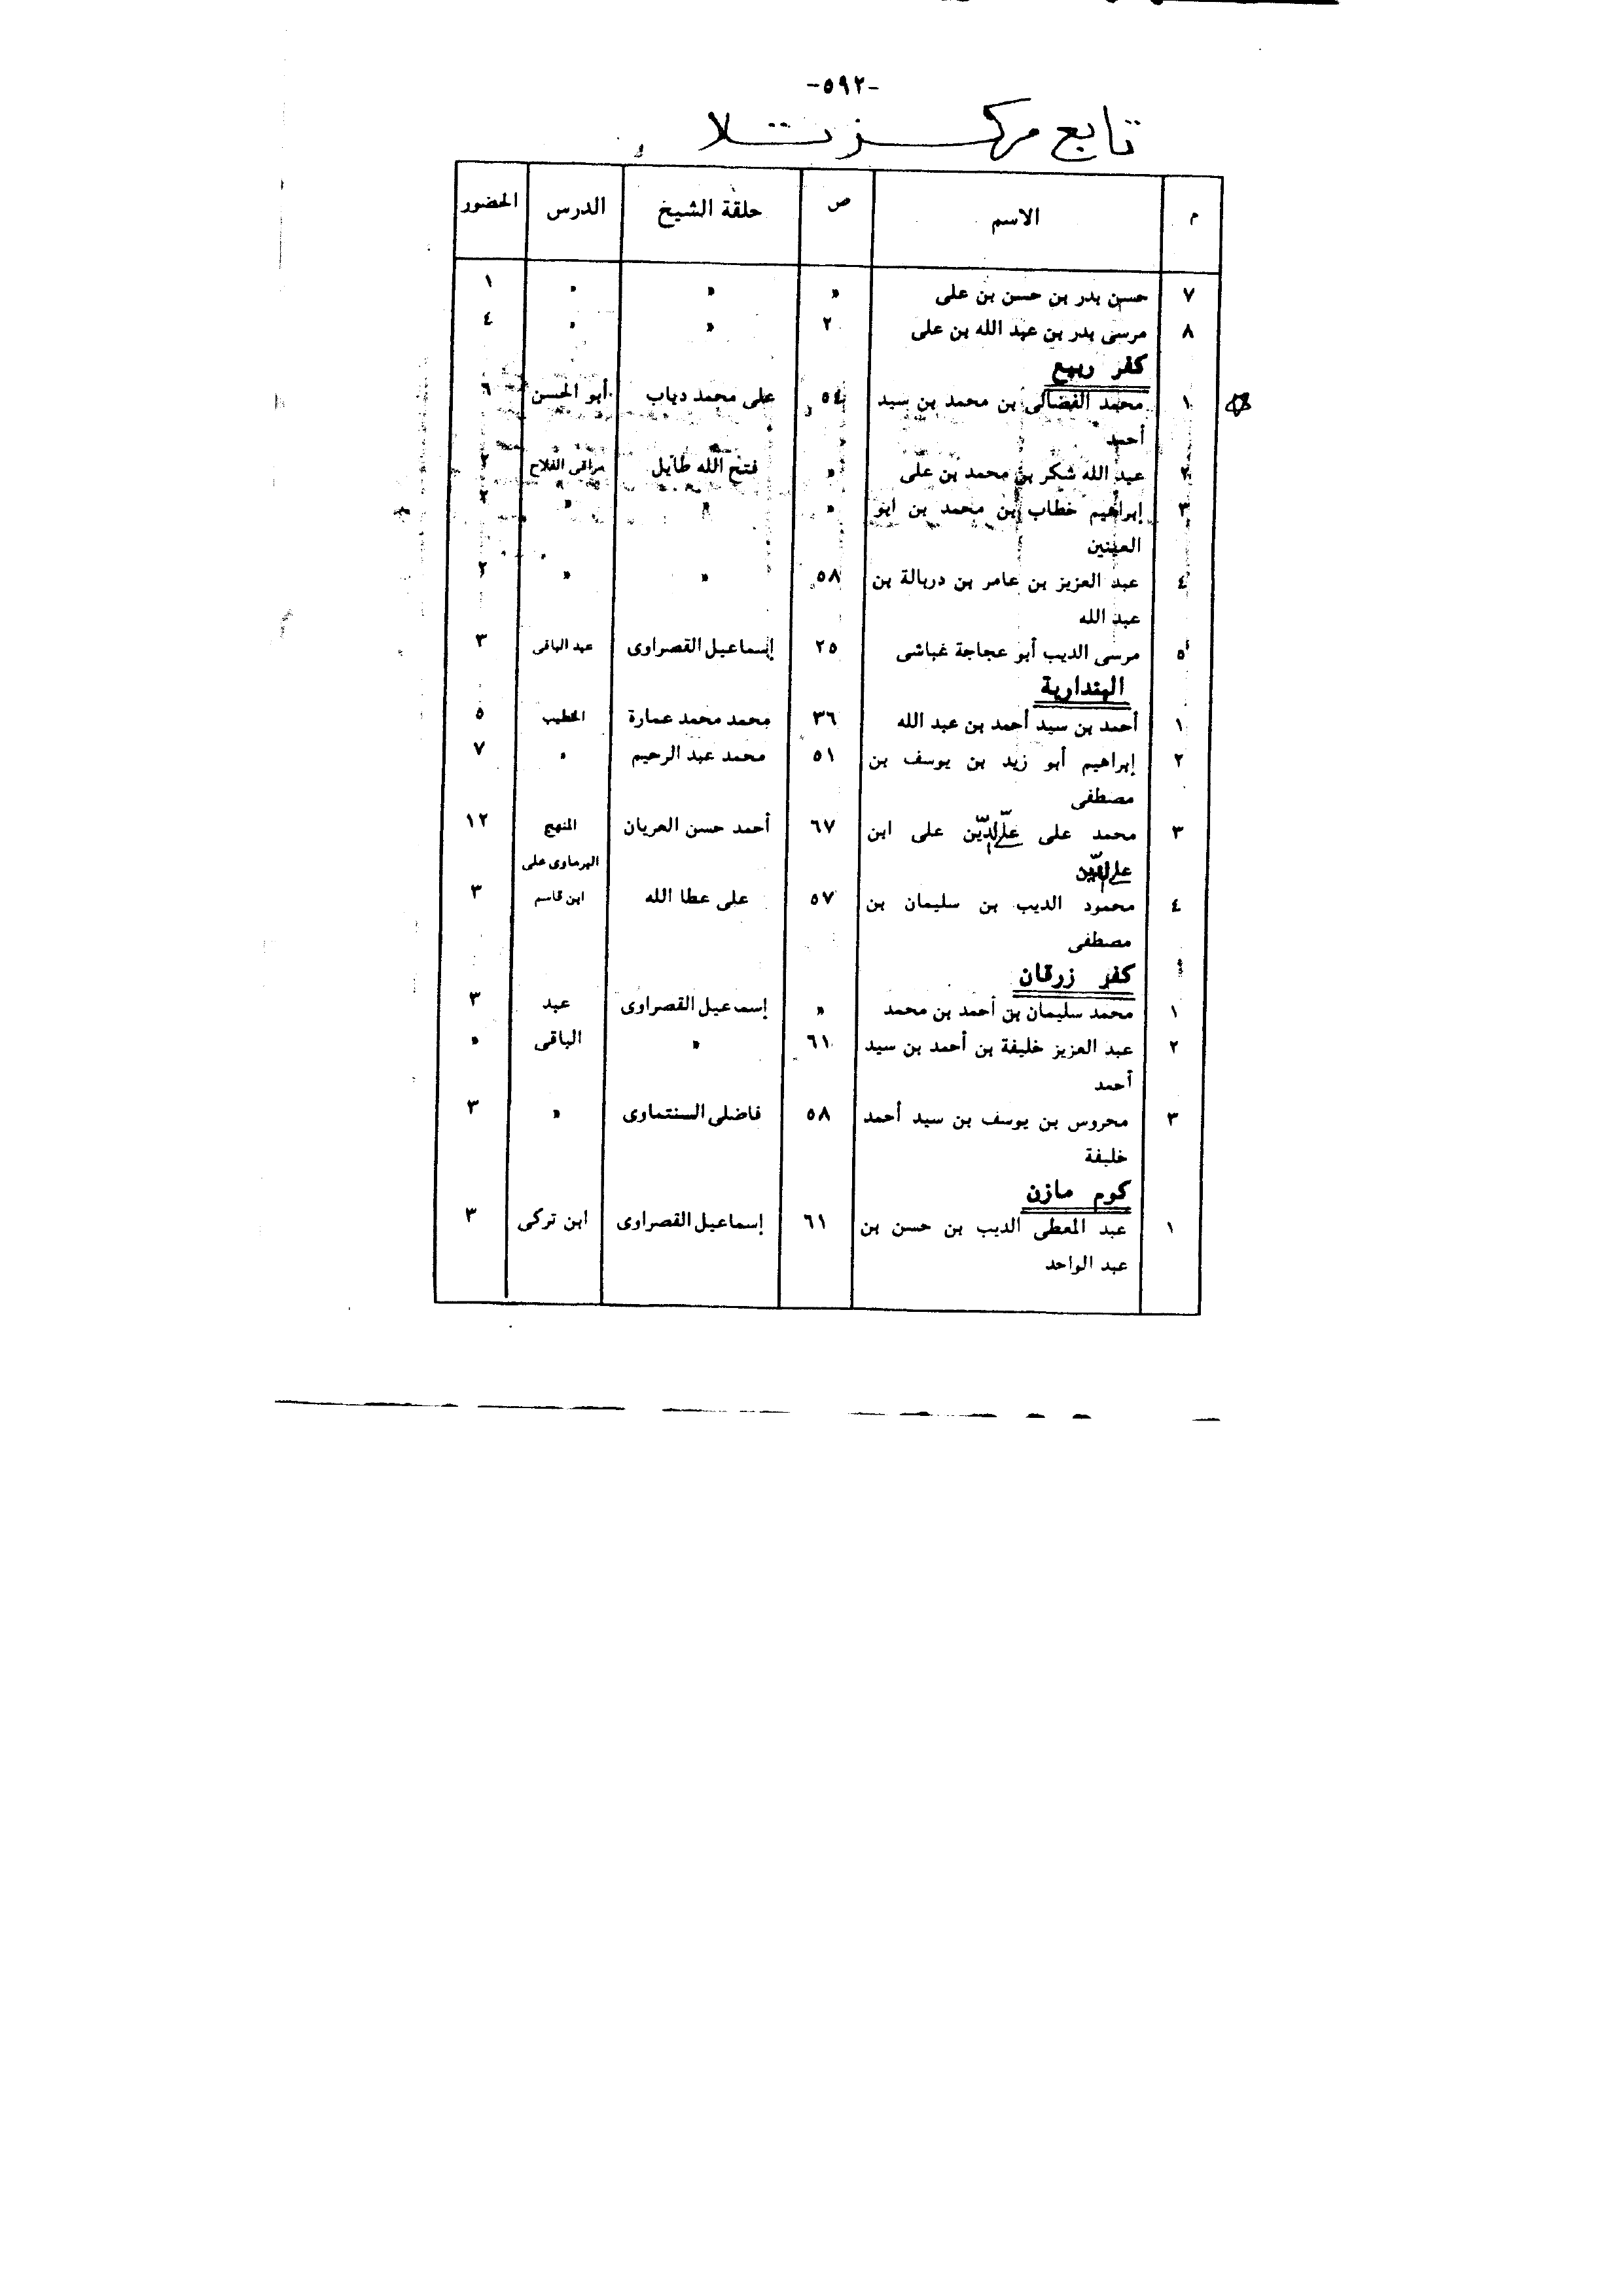 -٥٩٢-
تابع مركز تلا
م الاسم ص حلقة الشيخ الدرس الحضور
٧ حسن بدر بن حسن بن على » » » ١
٨ مرسى بدر بن عبد الله بن على ٢ » » ٤
كفر ربيع
١ محمد الفضالى بن محمد بن سيد ٥٤ على محمد دياب أبو الحسن ٦
أحمد
٢ عبد الله شكر بن محمد بن على » فتح الله طايل مراقى الفلاح ٢
٣ إبراهيم خطاب بن محمد بن ابو » » » ٢
العينين
٤ عبد العزيز بن عامر بن دربالة بن ٥٨ » » ٢
عبد الله
٥ مرسى الديب أبو عجاجة غباشى ٢٥ إسماعيل القصراوى عبد الباقى ٣
الهندارية
١ أحمد بن سيد أحمد بن عبد الله ٣٦ محمد محمد عمارة الخطيب ٥
٢ إبراهيم أبو زيد بن يوسف بن ٥١ محمد عبد الرحيم » ٧
مصطفى
٣ محمد على على ابن ٦٧ أحمد حسن العريان المنهج ١٢
البرماوى على
٤ محمود الديب بن سليمان بن ٥٧ على عطا الله ابن قاسم ٣
مصطفى
كفر زرقان
١ محمد سليمان بن أحمد بن محمد » إسماعيل القصراوى عبد ٣
٢ عبد العزيز خليفة بن أحمد بن سيد ٦١ » الباقى »
أحمد
٣ محروس بن يوسف بن سيد أحمد ٥٨ فاضلى السنتماوى » ٣
خليفة
كوم مازن
١ عبد المعطى الديب بن حسن بن ٦١ إسماعيل القصراوى ابن تركى ٣
عبد الواحد